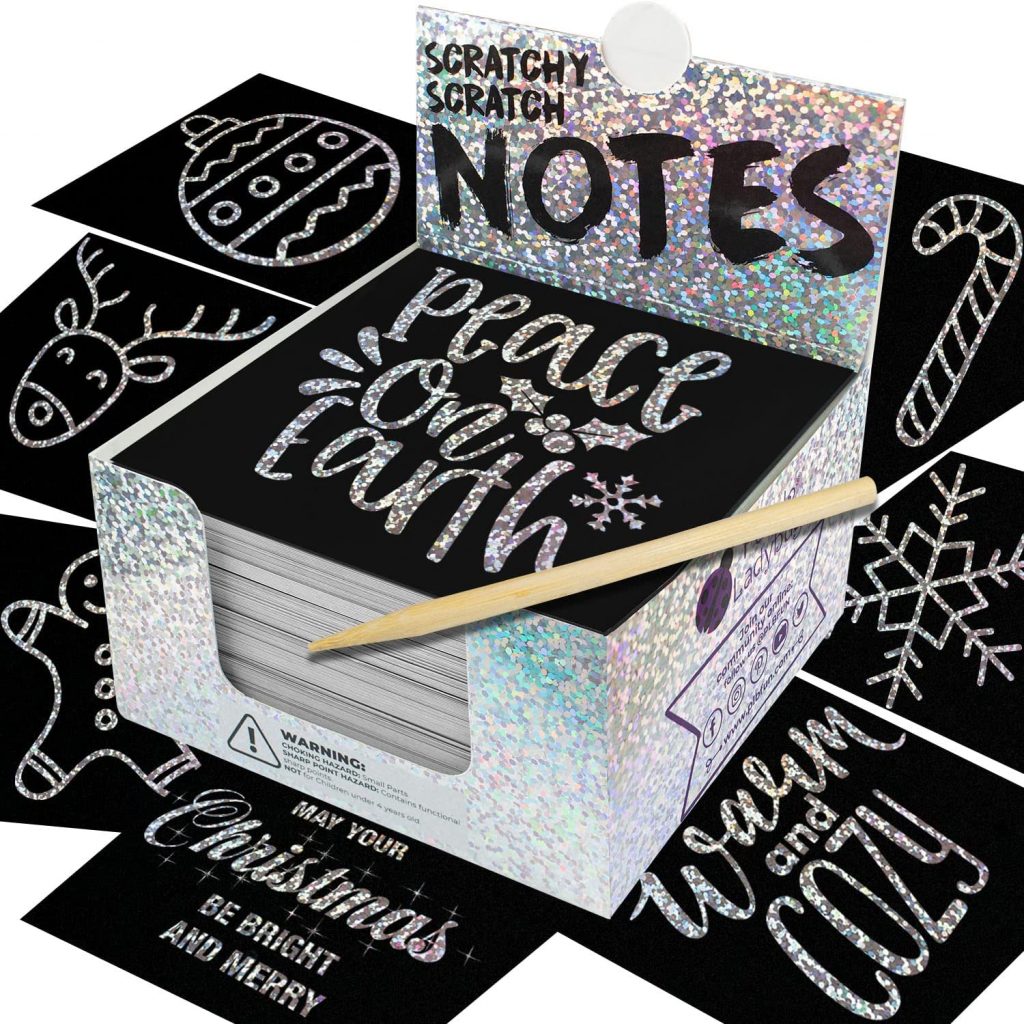 SCRATCHY
SCRATCH
NOTES
Peace
On
Earth
Ladybug
Join our online
community
www.prbfun.com
WARNING:
CHOKING HAZARD: Small Parts
SHARP POINT HAZARD: Contains functional
sharp points
NOT for Children under 4 years old
MAY YOUR
Christmas
BE BRIGHT
AND MERRY
Warm
and
COZY